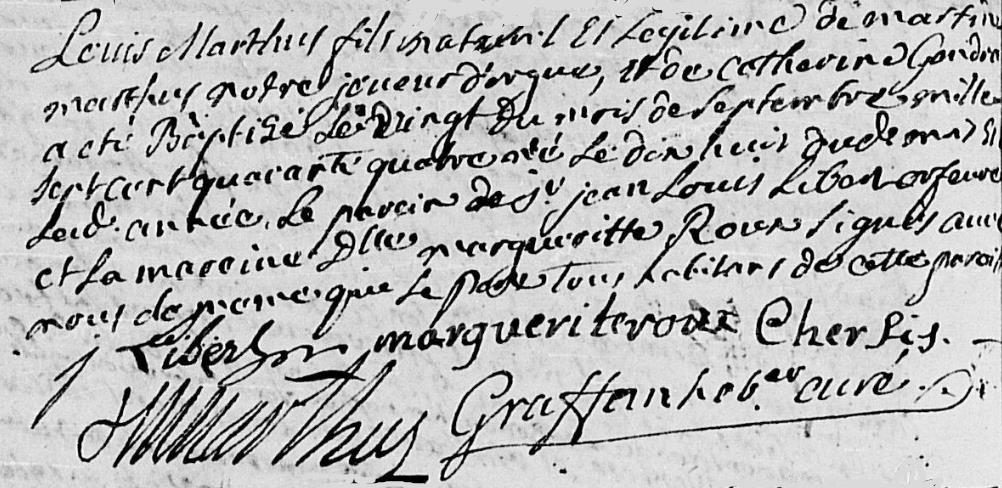 Louis Marthus fils naturel Et Legitime de martin
marthus notre joueur d'orgue, et de catherine Gondra
a eté Bàptizé Le Vingt du mois de septembre mille
sept cent quarante quatre né Le dix huit dud. mois Et
lad. année. Le parein de Sr. jean Louis Liberon orfevre
et La mareine Dlle margueritte Roux signés avec
nous de meme que Le pere Tous habitans de cette paroi
Liberon margueriteroux Chersis.
marthus Graffanhebер curé